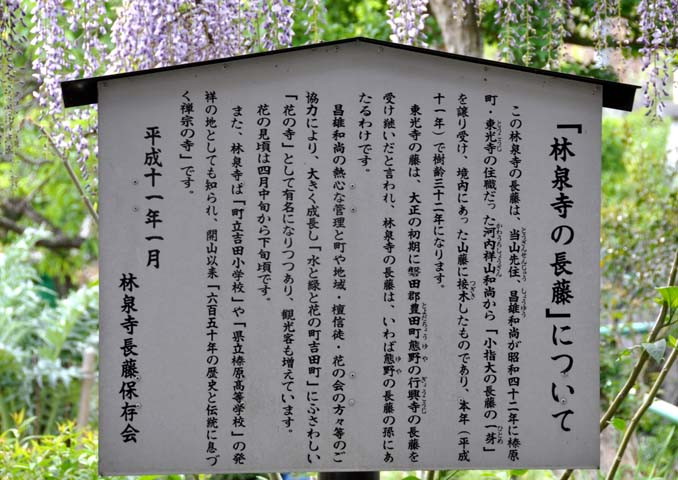 「林泉寺の長藤」について
この林泉寺の長藤は、当山先住、昌雄和尚が昭和四十二年に榛原
町・東光寺の住職だった河内祥山和尚から「小指大の長藤の一芽」
を譲り受け、境内にあった山藤に接木したものであり、本年（平成
十一年）で樹齢三十二年になります。
東光寺の藤は、大正の初期に磐田郡豊田町熊野の行興寺の長藤を
受け継いだと言われ、林泉寺の長藤は、いわば熊野の長藤の孫にあ
たるわけです。
昌雄和尚の熱心な管理と町や地域・檀信徒・花の会の方々等のご
協力により、大きく成長し「水と緑と花の町吉田町」にふさわしい
「花の寺」として有名になりつつあり、観光客も増えています。
花の見頃は四月中旬から下旬頃です。
また、林泉寺は「町立吉田小学校」や「県立榛原高等学校」の発
祥の地としても知られ、開山以来「六百五十年の歴史と伝統に息づ
く禅宗の寺」です。
平成十一年一月
林泉寺長藤保存会